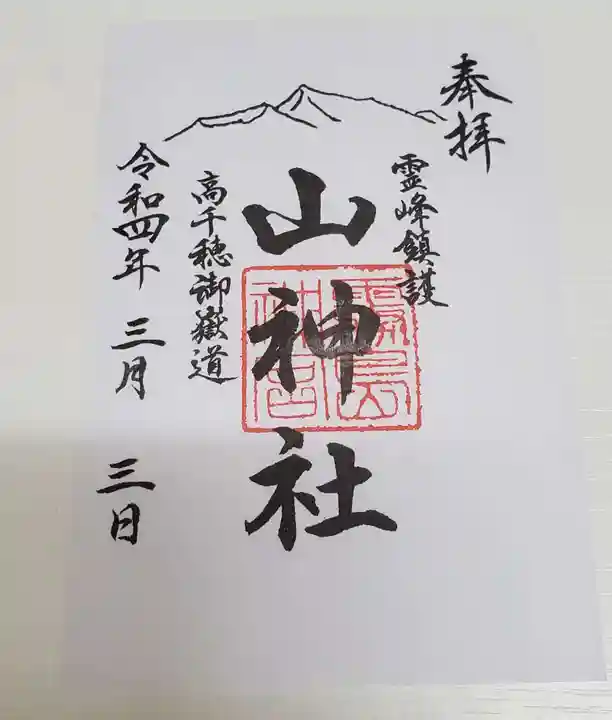 奉拝
霊峰鎮護
山神社
高千穂御嶽道
令和四年 三月 三日